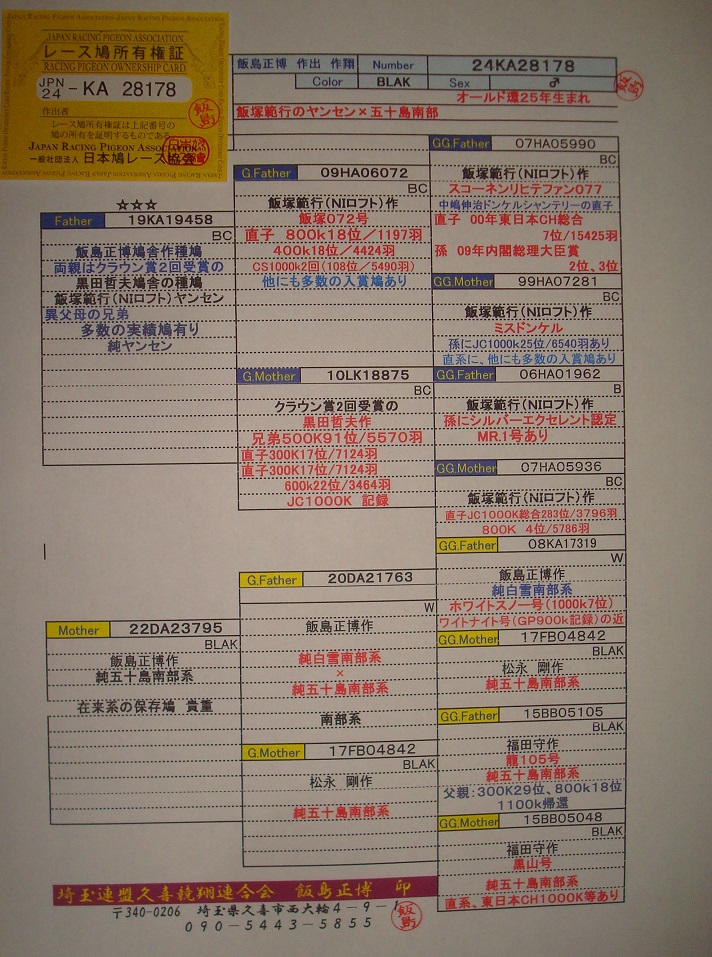 JAPAN RACING PIGEON ASSOCIATION
レース鳩所有権証
RACING PIGEON OWNERSHIP CARD
JPN
24 - KA 28178
作出者
レース鳩所有権証は上記番号の
鳩の所有を証明するものである
JAPAN RACING PIGEON ASSOCIATION
一般社団法人 日本鳩レース協会
飯島
飯島正博 作出 作翔 Number 24KA28178
Color BLAK Sex ♂
飯島
オールド環25年生まれ
飯塚範行のヤンセン×五十島南部
☆☆☆
Father 19KA19458
BC
飯島正博鳩舎作種鳩
両親はクラウン賞2回受賞の
黒田哲夫鳩舎の種鳩
飯塚範行(NIロフト)ヤンセン
異父母の兄弟
多数の実績鳩有り
純ヤンセン
Mother 22DA23795
BLAK
飯島正博作
純五十島南部系
在来系の保存鳩 貴重
G.Father 09HA06072
BC
飯塚範行(NIロフト)作
飯塚072号
直子 800k18位/1197羽
400k18位/4424羽
CS1000k2回(108位/5490羽)
他にも多数の入賞鳩あり
G.Mother 10LK18875
BC
クラウン賞2回受賞の
黒田哲夫作
兄弟500K91位/5570羽
直子300K17位/7124羽
直子300K17位/7124羽
600k22位/3464羽
JC1000K 記録
G.Father 20DA21763
W
飯島正博作
純白雪南部系
×
純五十島南部系
南部系
G.Mother 17FB04842
BLAK
松永 剛作
純五十島南部系
GG.Father 07HA05990
BC
飯塚範行(NIロフト)作
スコーネンリヒテファン077
中嶋伸治ドンケルシャンテリーの直子
直子 00年東日本CH総合
7位/15425羽
孫 09年内閣総理大臣賞
2位、3位
GG.Mother 99HA07281
BC
飯塚範行(NIロフト)作
ミスドンケル
孫にJC1000k25位/6540羽あり
直系に、他にも多数の入賞鳩あり
GG.Father 06HA01962
B
飯塚範行(NIロフト)作
孫にシルバーエクセレント認定
MR.1号あり
GG.Mother 07HA05936
BC
飯塚範行(NIロフト)作
直子JC1000K総合283位/3796羽
800K 4位/5786羽
GG.Father 08KA17319
W
飯島正博作
純白雪南部系
ホワイトスノー号(1000k7位)
ワイトナイト号(GP900k記録)の近
GG.Mother 17FB04842
BLAK
松永 剛作
純五十島南部系
GG.Father 15BB05105
BLAK
福田守作
龍105号
純五十島南部系
父親:300K29位、800k18位
1100k帰還
GG.Mother 15BB05048
BLAK
福田守作
黒山号
純五十島南部系
直系、東日本CH1000K等あり
埼玉連盟久喜競翔連合会 飯島正博 印
〒340-0206 埼玉県久喜市西大輪4-9-1
090-5443-5855
飯島